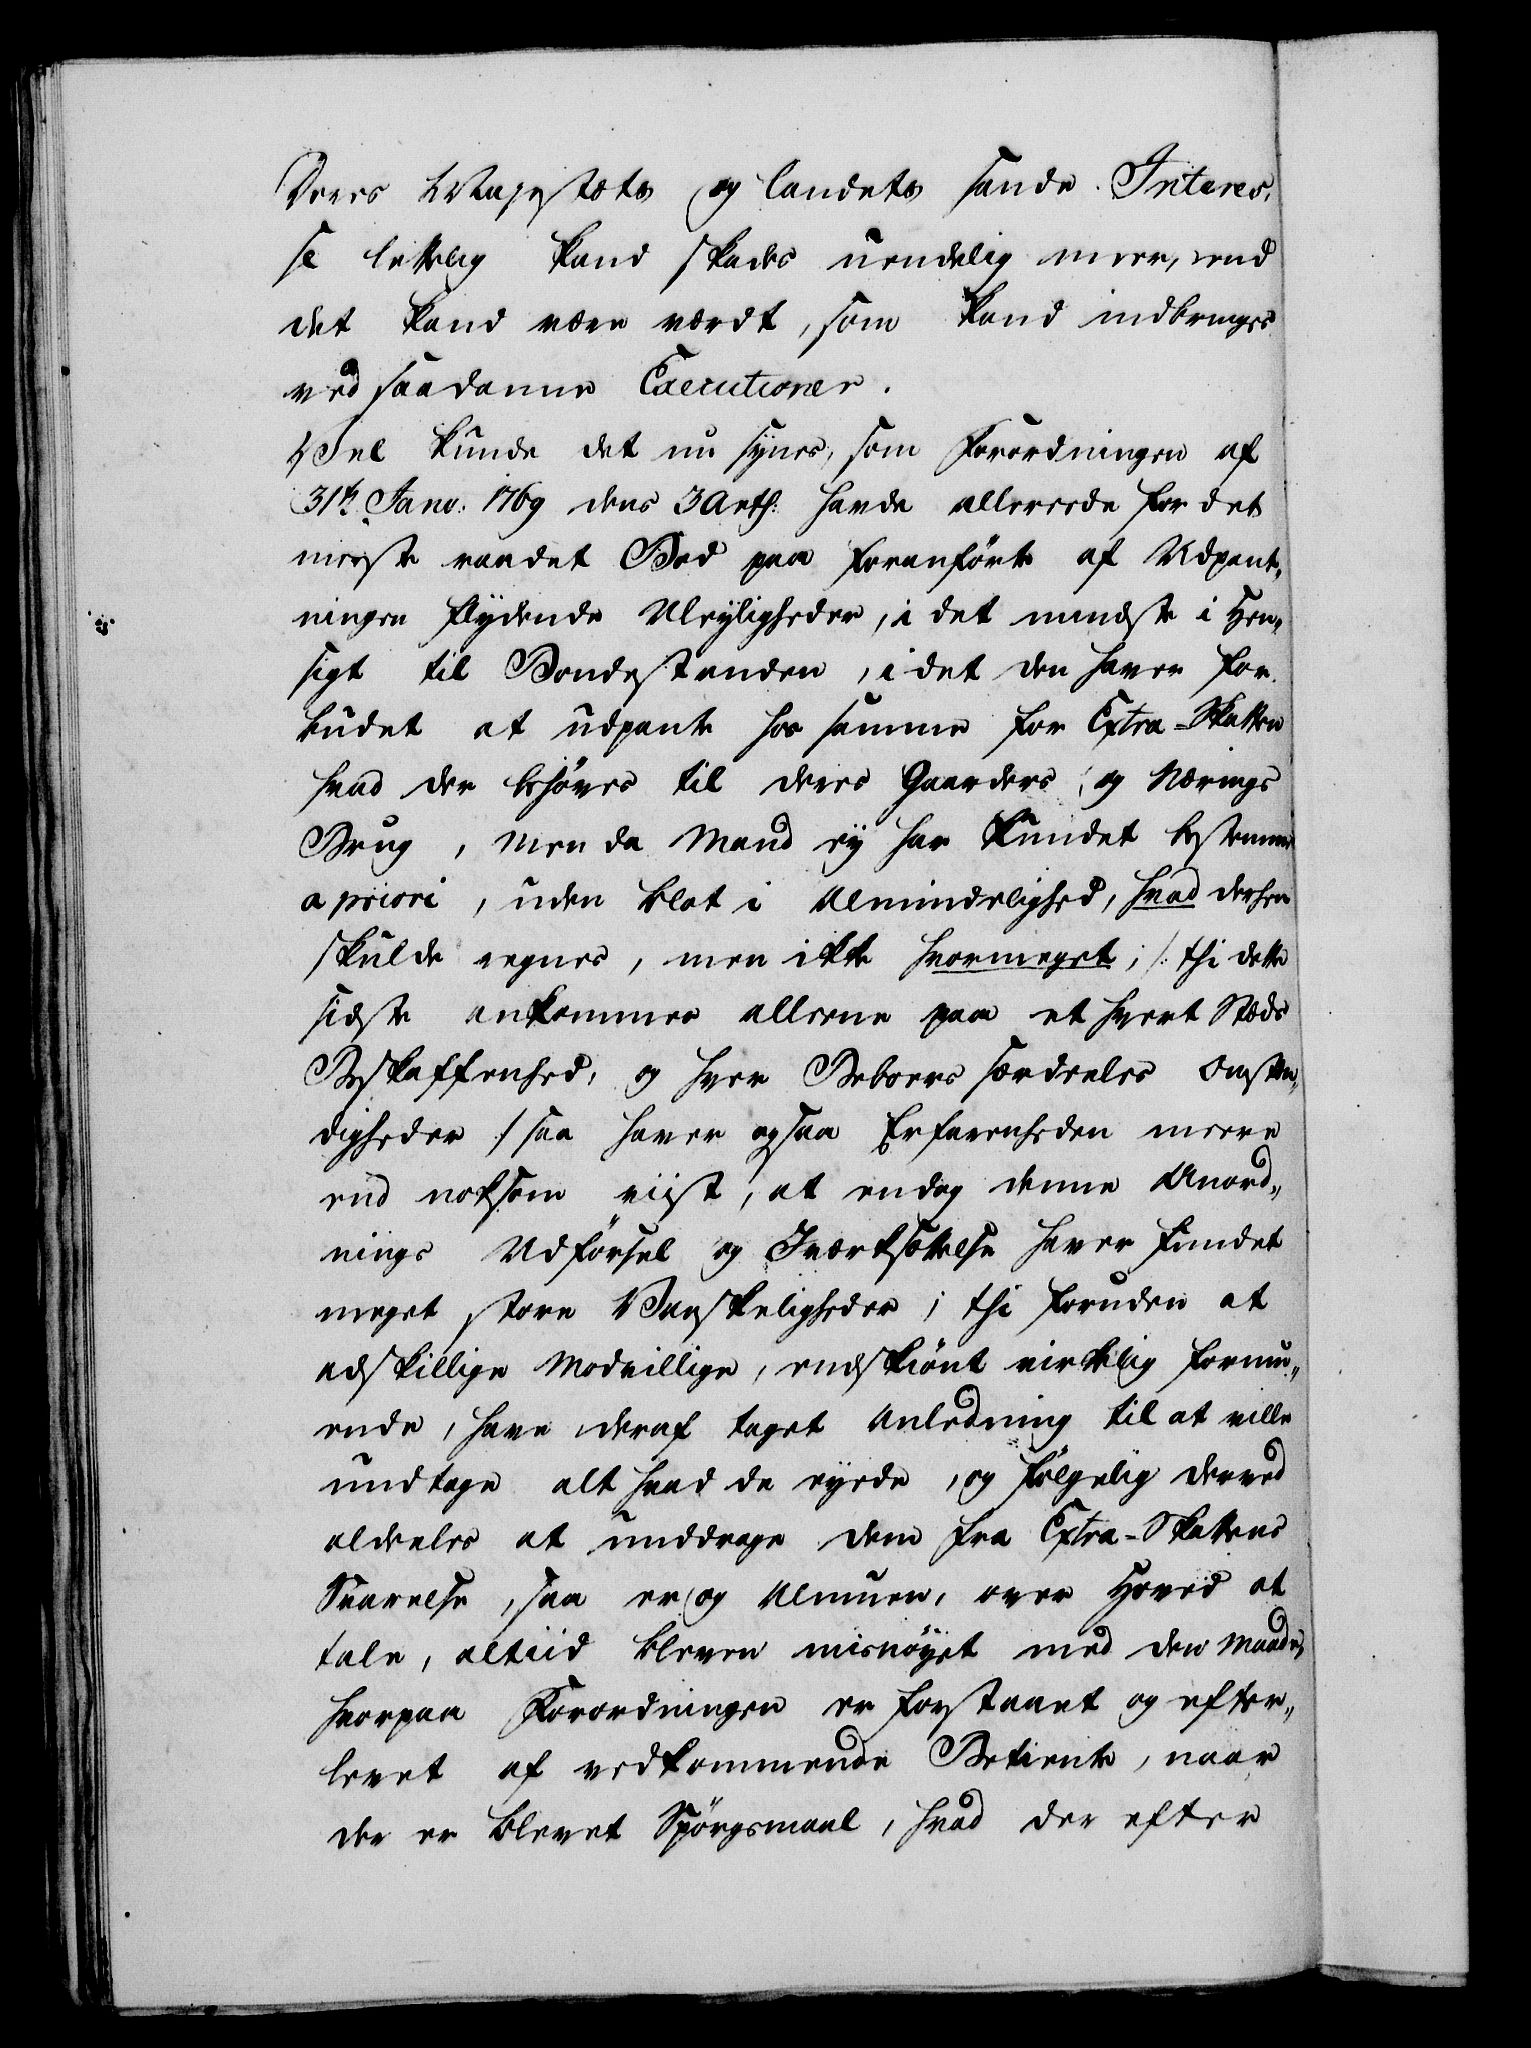 Deres Majestæts og landets sande Interes,
se lettelig kand skades uendelig meer, end
det kand være værdt, som kand indbringes
ved saadanne Executioner.
Vel kunde det nu synes, som Forordningen af
31te Janv: 1769 dens 3 Art: havde allereede for det
meeste raadet Bod paa foranførte af Udpant„
ningen flydende Uleyligheder, i det mindste i Hen„
sigt til Bondestanden, i det den haver for„
budet at udpante hos samme for Extra-Skatten
hvad der behøves til deres Gaarders og Nærings
Brug, men da Mand ey har kundet bestemme
a priori, uden blot i Almindelighed, hvad derhen
skulde regnes, men ikke hvormeget; /: thi dette
sidste ankommer alleene paa et hvert Stæds
Beskaffenhed, og hver Beboers særdeeles Omstæn„
digheder :/ saa haver ogsaa Erfarenheden meere
end noksom viist, at endog denne Anord„
nings Udførsel og Iværksættelse haver fundet
meget store Vanskeligheder; thi foruden at
adskillige Modvillige, endskiønt virkelig formu„
ende, have deraf taget Anledning til at ville
undtage alt hvad de eyede, og følgelig derved
aldeeles at unddrage dem fra Extra-Skattens
Svarelse, saa er og Almuen, over Hoved at
tale, altiid bleven misnøyet med den Maade,
hvorpaa Forordningen er forstaaet og efter„
levet af vedkommende Betiente, naar
der er blevet Spørgsmaal, hvad der efter